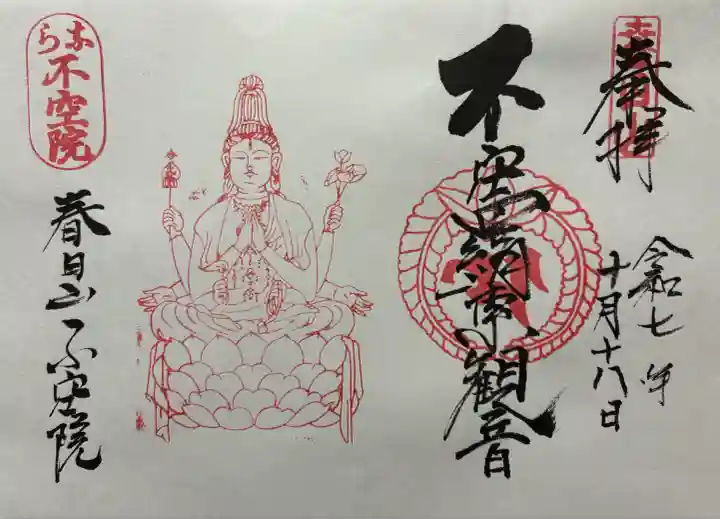 奉拝
令和七年
十月十八日
不空羂索観音
春日山不空院
なら
不空院